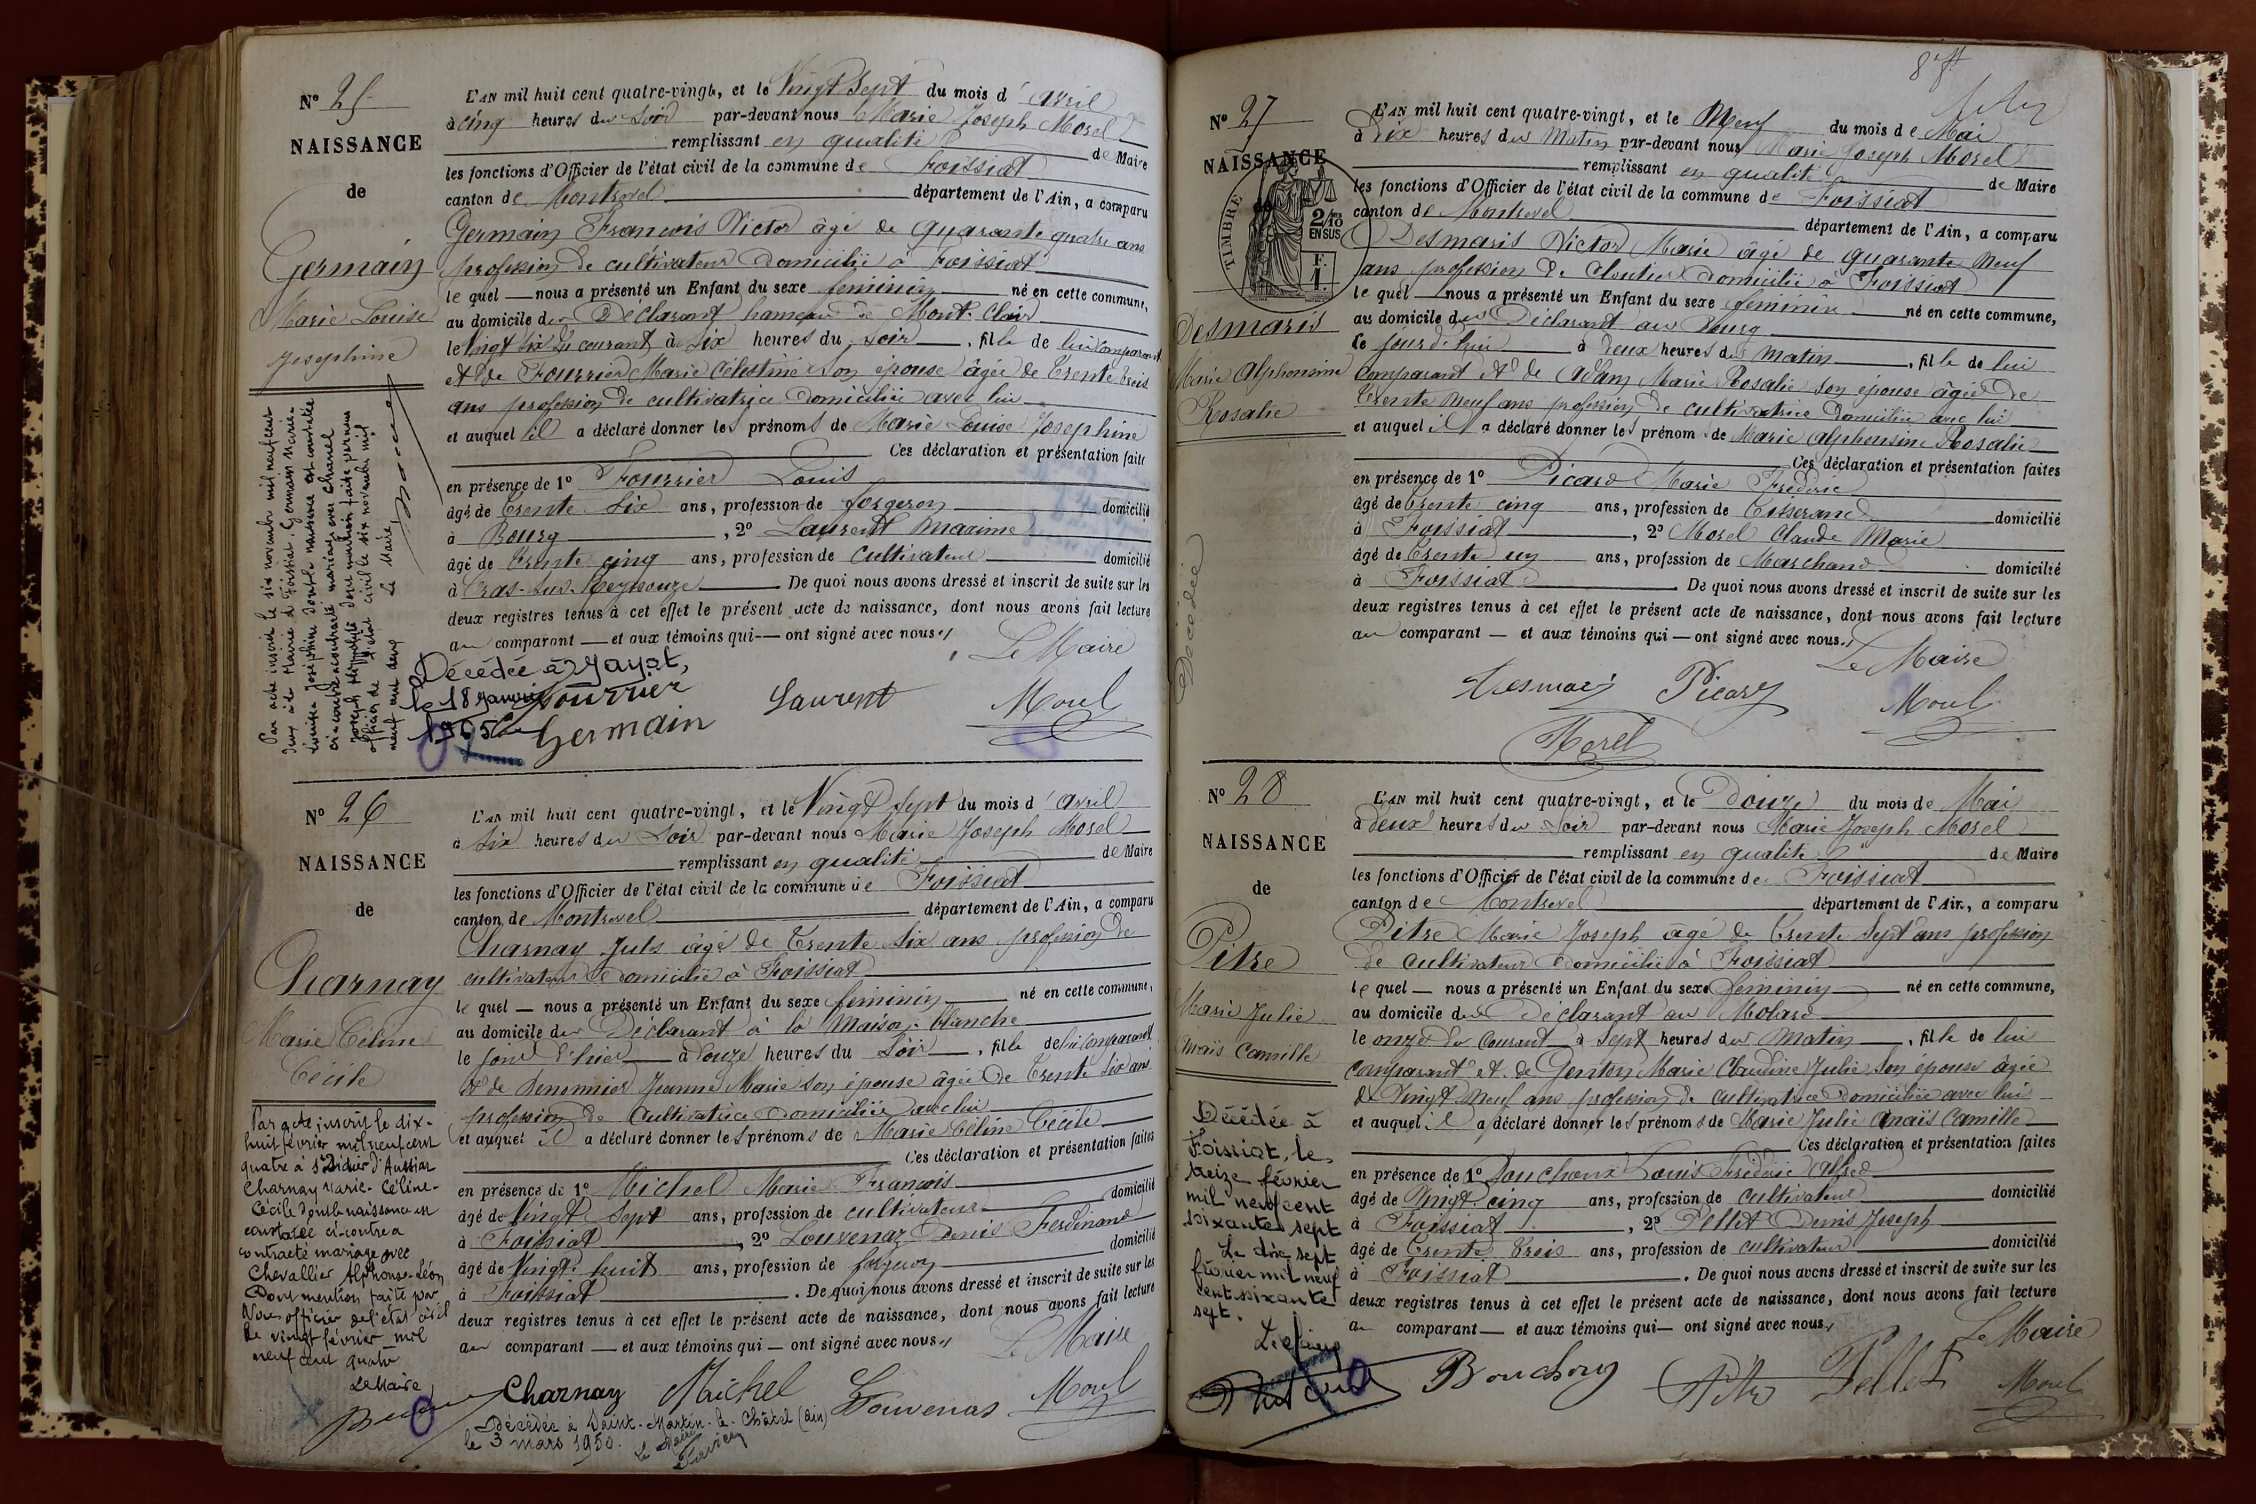 N° 25
NAISSANCE
de
Germain
Marie Louise
Josephine
L'AN mil huit cent quatre-vingt, et le Vingt Sept du mois d'avril
à cinq heures du Soir par-devant nous Marie Joseph Morel
remplissant en qualité de Maire
les fonctions d'Officier de l'état civil de la commune de Foissiat
canton de Montrevel département de l'Ain, a comparu
Germain François Victor âgé de quarante quatre ans
profession de cultivateur domicilié à Foissiat
le quel — nous a présenté un Enfant du sexe féminin né en cette commune,
au domicile du Déclarant hameau de Mont-Clair
le vingt six du courant à Six heures du soir, fille de lui comparant
et de Fourrier Marie Célestine son épouse âgée de trente trois
ans profession de cultivatrice domiciliée avec lui
et auquel il a déclaré donner les prénoms de Marie Louise Josephine
Ces déclaration et présentation faites
en présence de 1° Fourrier Louis
âgé de trente Six ans, profession de forgeron domicilié
à Bourg, 2° Laurent Maxime
âgé de trente cinq ans, profession de cultivateur domicilié
à Cras-sur-Reyssouze De quoi nous avons dressé et inscrit de suite sur les
deux registres tenus à cet effet le présent acte de naissance, dont nous avons fait lecture
au comparant — et aux témoins qui — ont signé avec nous.
Le Maire
Fourrier Laurent Morel
Germain
Par acte inscrit le six novembre mil neuf cent
deux à la Mairie de Foissiat, Germain Marie
Louise Joséphine dont la naissance est constatée
ci-contre a contracté mariage avec Charvet
Joseph Hippolyte dont mention faite par nous
officier de l'état civil le six novembre mil
neuf cent deux
Le Maire
Décédée à Jayat,
le 18 janvier
195
N° 26
NAISSANCE
de
Charnay
Marie Céline
Cécile
L'AN mil huit cent quatre-vingt, et le Vingt Sept du mois d'avril
à Six heures du Soir par-devant nous Marie Joseph Morel
remplissant en qualité de Maire
les fonctions d'Officier de l'état civil de la commune de Foissiat
canton de Montrevel département de l'Ain, a comparu
Charnay Juls âgé de Trente Six ans profession de
cultivateur domicilié à Foissiat
le quel — nous a présenté un Enfant du sexe féminin né en cette commune,
au domicile du Déclarant à la Maison-blanche
le jour d'hier à douze heures du Soir, fille de lui comparant
et de Jeanne Marie son épouse âgée de Trente Six ans
profession de cultivatrice domiciliée avec lui
et auquel il a déclaré donner les prénoms de Marie Céline Cécile
Ces déclaration et présentation faites
en présence de 1° Michel Marie François
âgé de Vingt Sept ans, profession de cultivateur domicilié
à Foissiat, 2° Louvenaz Denis Ferdinand
âgé de Vingt huit ans, profession de forgeron domicilié
à Foissiat. De quoi nous avons dressé et inscrit de suite sur les
deux registres tenus à cet effet le présent acte de naissance, dont nous avons fait lecture
au comparant — et aux témoins qui — ont signé avec nous.
Le Maire
Charnay Michel Louvenas Morel
Par acte inscrit le dix-
huit février mil neuf cent
quatre à St Didier d'Aussiat
Charnay Marie-Céline-
Cécile dont la naissance est
constatée ci-contre a
contracté mariage avec
Chevallier Alphonse-Léon
Dont mention faite par
Nous officier de l'état civil
le vingt février mil
neuf cent quatre
Le Maire,
Décédée à Saint-Martin-le-Châtel (Ain)
le 3 mars 1950.
Le Maire
8
N° 27
NAISSANCE
TIMBRE
2/10
EN SUS
F.
1.
Desmaris
Marie Alphonsine
Rosalie
Décédée
L'AN mil huit cent quatre-vingt, et le Neuf du mois de Mai
à Dix heures du Matin par-devant nous Marie Joseph Morel
remplissant en qualité de Maire
les fonctions d'Officier de l'état civil de la commune de Foissiat
canton de Montrevel département de l'Ain, a comparu
Desmaris Victor Marie âgé de quarante Neuf
ans profession de Cloutier domicilié à Foissiat
le quel — nous a présenté un Enfant du sexe féminin né en cette commune,
au domicile du Déclarant au Bourg
le jour d'hui à deux heures du Matin, fille de lui
comparant et de Adam Marie Rosalie son épouse âgée de
trente Neuf ans profession de cultivatrice domiciliée avec lui
et auquel il a déclaré donner les prénoms de Marie alphonsine Rosalie
Ces déclaration et présentation faites
en présence de 1° Picard Marie Fréderic
âgé de trente cinq ans, profession de Tisserand domicilié
à Foissiat, 2° Morel Claude Marie
âgé de trente un ans, profession de Marchand domicilié
à Foissiat De quoi nous avons dressé et inscrit de suite sur les
deux registres tenus à cet effet le présent acte de naissance, dont nous avons fait lecture
au comparant — et aux témoins qui — ont signé avec nous.
Le Maire
Desmaris Picard Morel
Morel
N° 28
NAISSANCE
de
Pitre
Marie Julie
Anaïs Camille
L'AN mil huit cent quatre-vingt, et le Douze du mois de Mai
à deux heures du Soir par-devant nous Marie Joseph Morel
remplissant en qualité de Maire
les fonctions d'Officier de l'état civil de la commune de Foissiat
canton de Montrevel département de l'Ain, a comparu
Pitre Marie Joseph âgé de trente Sept ans profession
de cultivateur domicilié à Foissiat
le quel — nous a présenté un Enfant du sexe féminin né en cette commune,
au domicile du Déclarant au Molard
le onze du courant à Sept heures du Matin, fille de lui
comparant et de Genton Marie Claudine Julie son épouse âgée
de Vingt Neuf ans profession de cultivatrice domiciliée avec lui
et auquel il a déclaré donner les prénoms de Marie Julie Anaïs Camille
Ces déclaration et présentation faites
en présence de 1° Bouchoux Louis Fréderic Alfred
âgé de Vingt cinq ans, profession de cultivateur domicilié
à Foissiat, 2° Pellet Denis Joseph
âgé de trente trois ans, profession de cultivateur domicilié
à Foissiat. De quoi nous avons dressé et inscrit de suite sur les
deux registres tenus à cet effet le présent acte de naissance, dont nous avons fait lecture
au comparant — et aux témoins qui — ont signé avec nous.
Le Maire
Bouchoux Pitre Pellet Morel
Décédée à
Foissiat, le
treize février
mil neuf cent
soixante sept
Le dix sept
février mil neuf
cent soixante
sept.